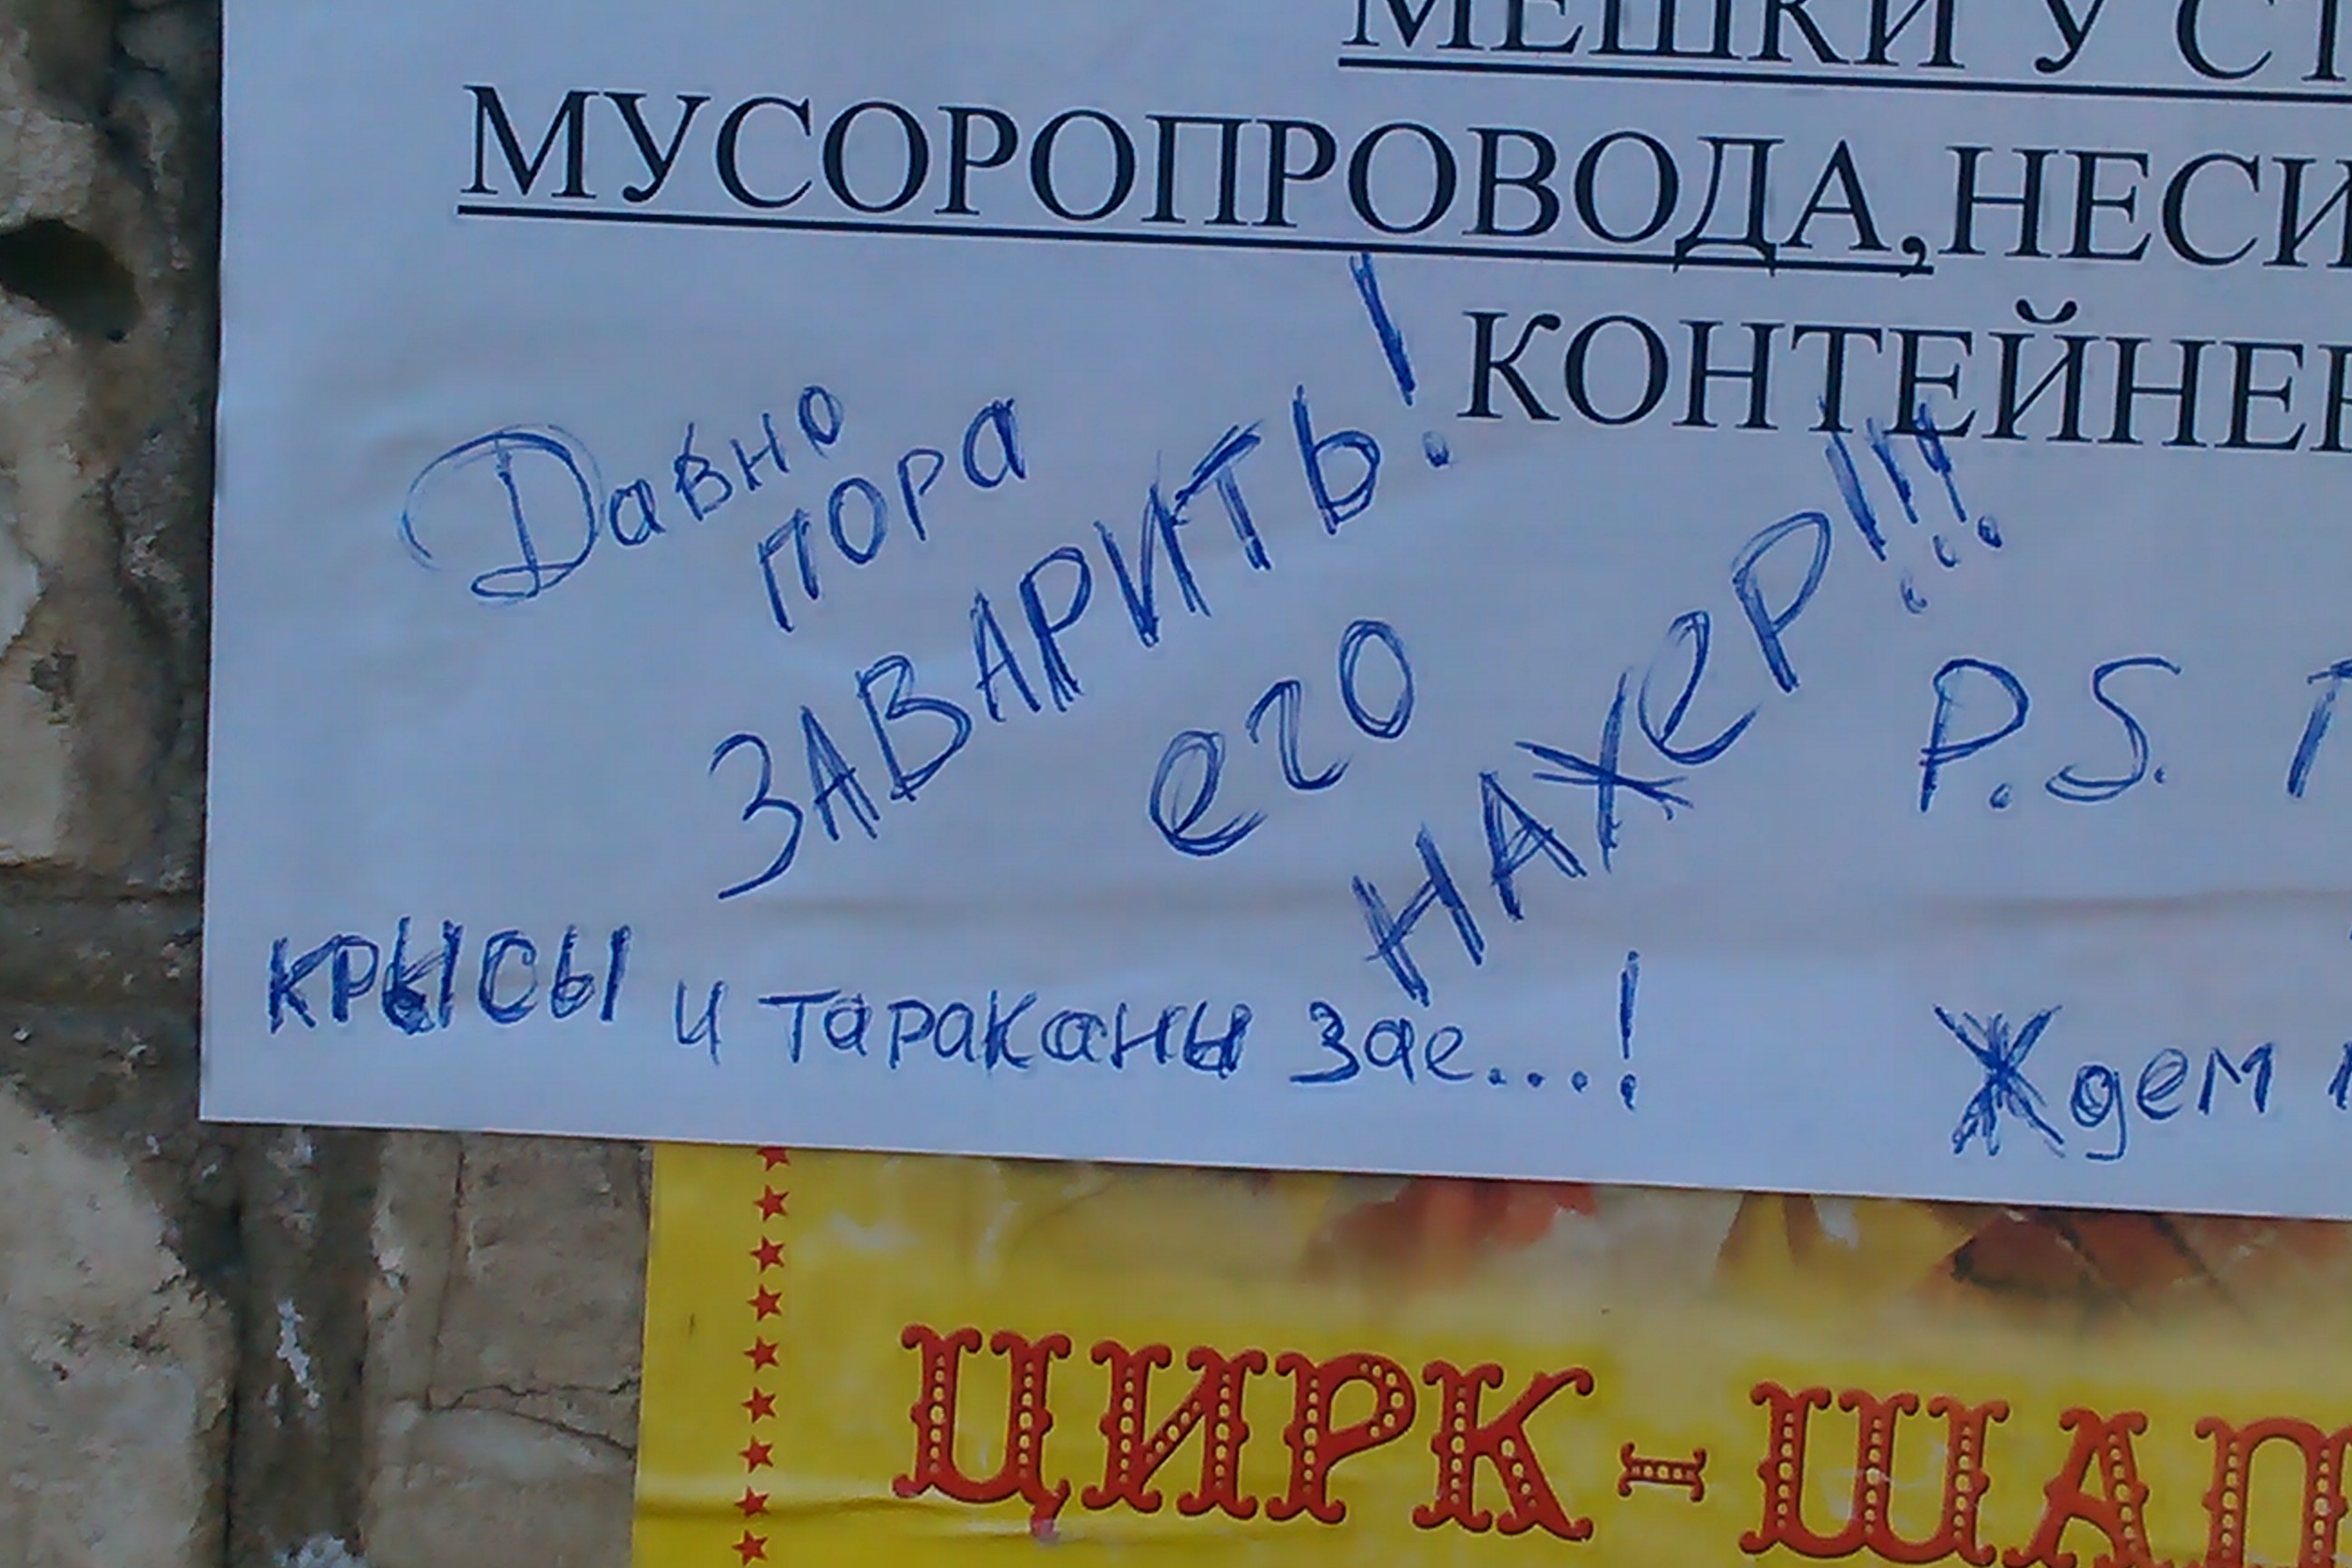 МЕШКИ У СТ
МУСОРОПРОВОДА,НЕСИ
КОНТЕЙНЕ
Давно
пора
ЗАВАРИТЬ!
его
НАХеР!!!
P.S.
крысы и тараканы зае...!
Ждем
ЦИРК-ШАП